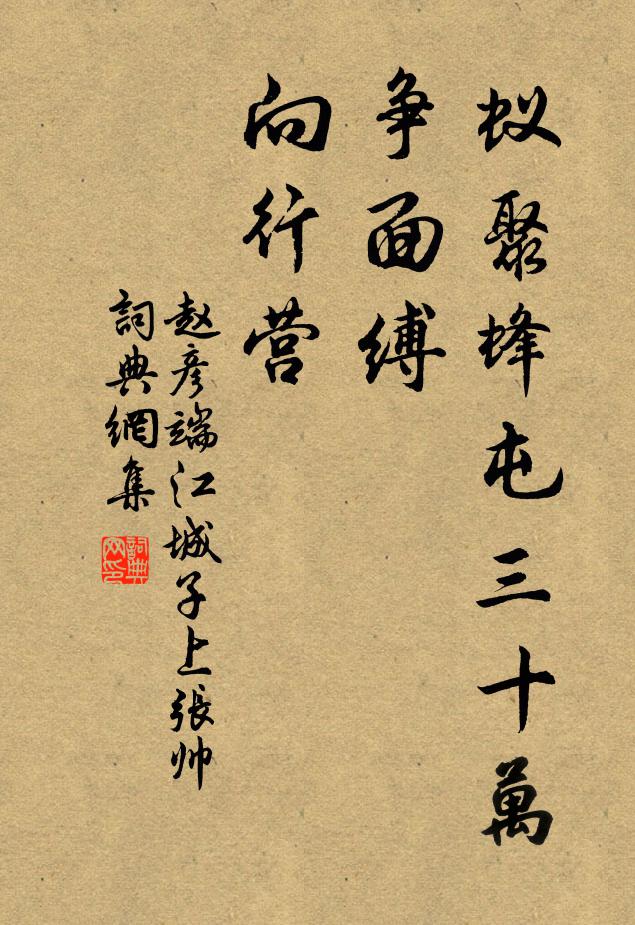 蚁聚蜂屯三十萬
争面缚
向行营
赵彦端江城子上張帅
詞典網集
詞典
网印